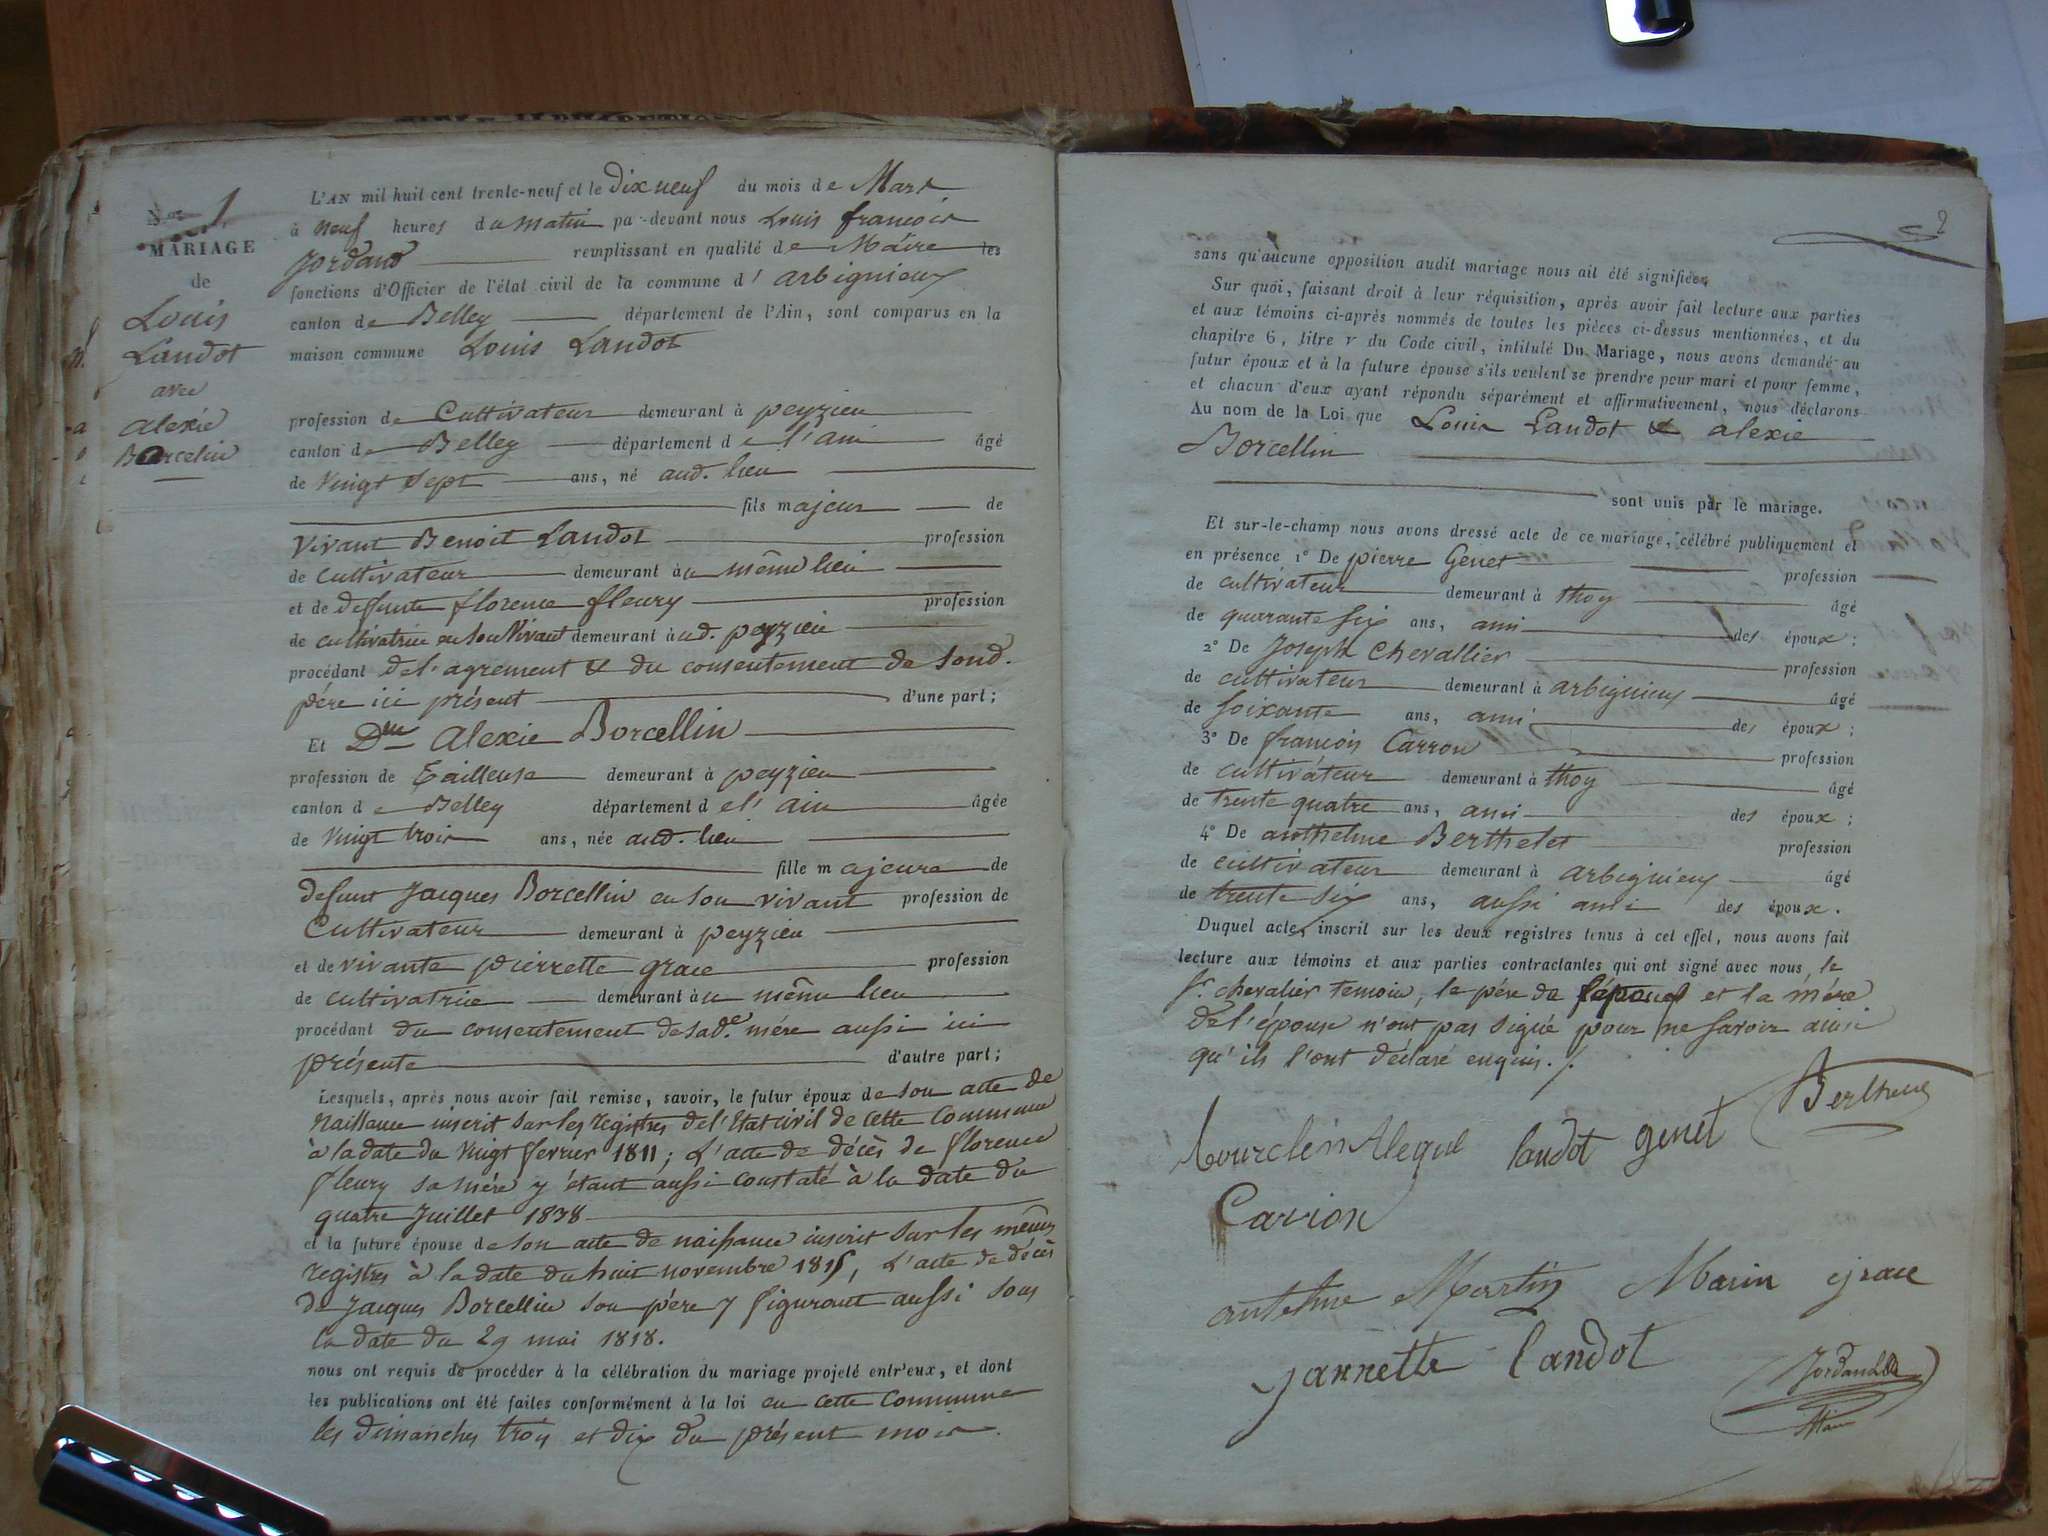 N.º 1
MARIAGE
de
Louis
Landot
avec
alexie
Borcelin
L'AN mil huit cent trente-neuf et le dix neuf du mois de Mars
à neuf heures du matin pa-devant nous Louis françois
Jordand remplissant en qualité de Maire les
fonctions d'Officier de l'état civil de la commune d'arbignieux
canton de Belley département de l'Ain, sont comparus en la
maison commune Louis Landot
profession de Cultivateur demeurant à peyzieu
canton de Belley département de l'ain âgé
de vingt sept ans, né aud. lieu
fils majeur de
vivant Benoit Landot profession
de cultivateur demeurant au même lieu
et de deffunte florence fleury profession
de cultivatrice en son vivant demeurant aud. peyzieu
procédant de l'agrement & du consentement de sond.
père ici présent d'une part;
Et Dlle alexie Borcellin
profession de Tailleuse demeurant à peyzieu
canton de Belley département de l'ain âgée
de vingt trois ans, née aud. lieu
fille majeure de
defunt Jacques Borcellin en son vivant profession de
Cultivateur demeurant à peyzieu
et de vivante pierrette grace profession
de cultivatrice demeurant au même lieu
procédant du consentement de sade. mére aussi ici
présente d'autre part;
Lesquels, après nous avoir fait remise, savoir, le futur époux de son acte de
naissance inscrit sur les registres de l'Etat civil de cette commune
à la date du vingt fevrier 1811; L'acte de décès de florence
fleury sa mére y étant aussi constaté à la date du
quatre Juillet 1838
et la future épouse de son acte de naissance inscrit sur les mêmes
registres à la date du huit novembre 1815, L'acte de décès
de Jacques Borcellin son pére y figurant aussi sous
la date du 29 mai 1818.
nous ont requis de procéder à la célébration du mariage projeté entr'eux, et dont
les publications ont été faites conformément à la loi en cette Commune
les dimanches trois et dix du présent mois.
2
sans qu'aucune opposition audit mariage nous ait été signifiée,
Sur quoi, faisant droit à leur réquisition, après avoir fait lecture aux parties
et aux témoins ci-après nommés de toutes les pièces ci-dessus mentionnées, et du
chapitre 6, titre v du Code civil, intitulé Du Mariage, nous avons demandé au
futur époux et à la future épouse s'ils veulent se prendre pour mari et pour femme,
et chacun d'eux ayant répondu séparément et affirmativement, nous déclarons
Au nom de la Loi que Louis Landot & alexie
Borcellin
sont unis par le mariage.
Et sur-le-champ nous avons dressé acte de ce mariage, célébré publiquement et
en présence 1º De pierre Genet profession
de cultivateur demeurant à thoy âgé
de quarante six ans, ami des époux;
2º De Joseph Chevallier profession
de cultivateur demeurant à arbignieux âgé
de soixante ans, ami des époux;
3º De françois Carron profession
de cultivateur demeurant à thoy âgé
de trente quatre ans, ami des époux;
4º De anthelme Berthelet profession
de cultivateur demeurant à arbignieux âgé
de trente six ans, aussi ami des époux.
Duquel acte, inscrit sur les deux registres tenus à cet effet, nous avons fait
lecture aux témoins et aux parties contractantes qui ont signé avec nous, le
Sr. chevalier temoin, le pére de l'époux et la mére
de l'épouse n'ont pas signé pour ne savoir ainsi
qu'ils l'ont déclaré enquis./.
landot genet
Carion
antelme Martin Marin grace
Jannette landot
Jordand
Maire